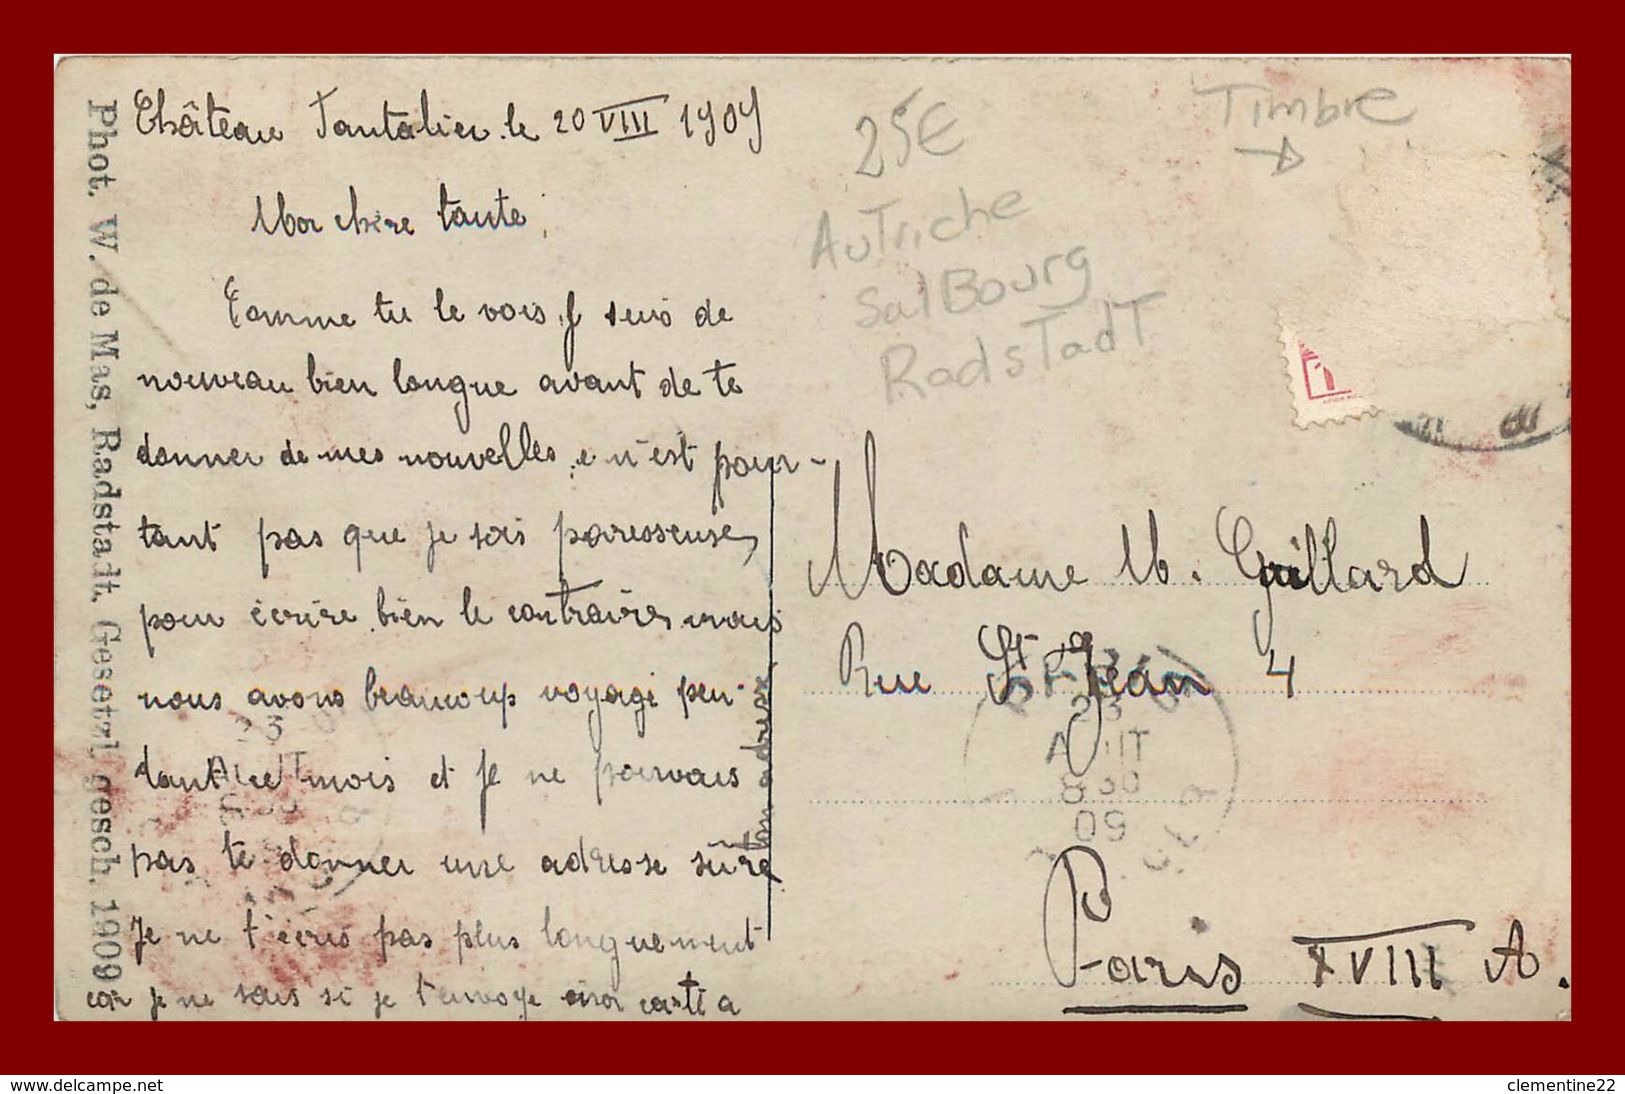 Château Tantalier le 20 VIII 1909
Mon chère tante,
Comme tu le vois, j suis de
nouveau bien longue avant de te
donner de mes nouvelles, c n'est pour-
tant pas que je sois paresseuse,
pour écrire bien le contraire, mais
nous avons beaucoup voyagé pen-
dant ce mois et je ne pouvais
pas te donner une adresse sûre
Je ne t'écris pas plus longuement
car je ne sais si je t'envoye ma carte a
ton adresse
Phot. W. de Mas, Radstadt. Gesetzl. gesch. 1909.
25€
Autriche
SalBourg
RadsTadT
Timbre
Madame M. Guillard
Rue St Jean 4
Paris XVIII A.
23
AOUT
8 30
09
23
AOUT
delcampe.net
clementine22